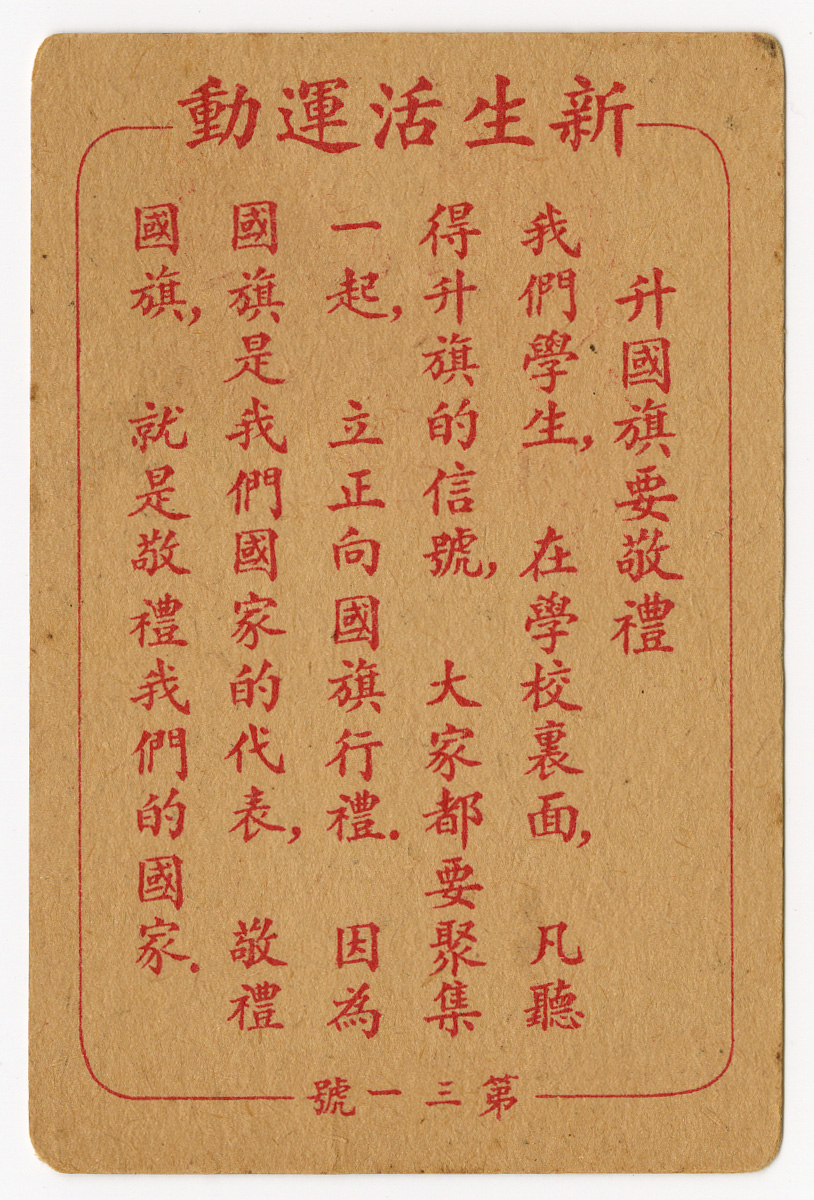 新生活運動
升國旗要敬禮
我們學生，在學校裏面，凡聽
得升旗的信號，大家都要聚集
一起，立正向國旗行禮．因為
國旗是我們國家的代表，敬禮
國旗，就是敬禮我們的國家．
第三一號